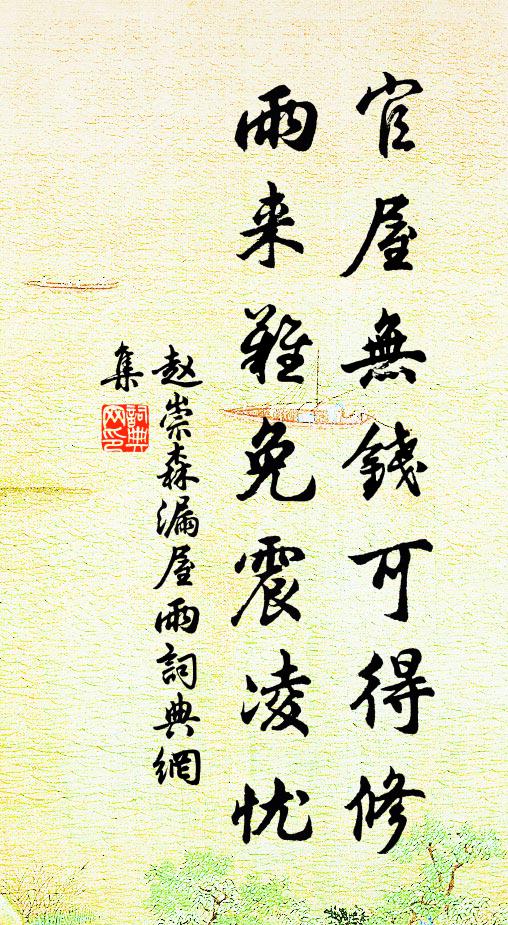 官屋無錢可得修
雨来難免震凌忧
赵崇森漏屋雨詞典網
集
詞典
网印